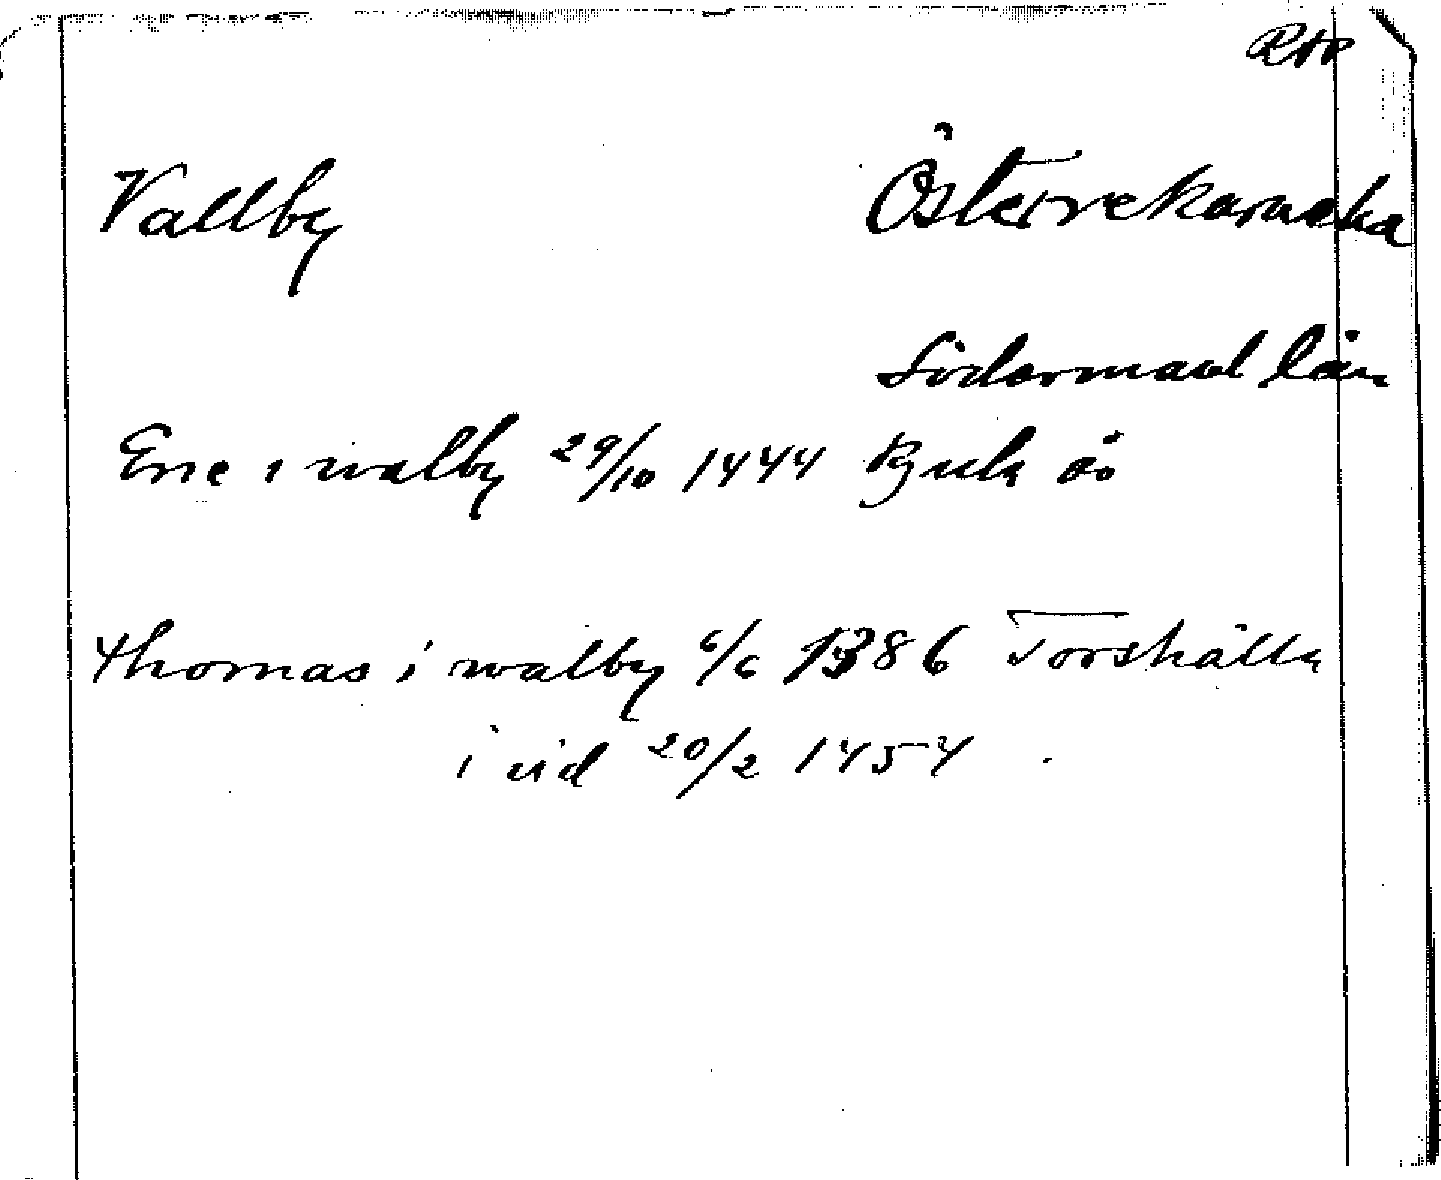 Vallby Österrekarneka
Södermanl län
Eric i walby 29/10 1444 Kjula ås
thomas i walby 6/6 1386 Torshälla
i vid 20/2 1454